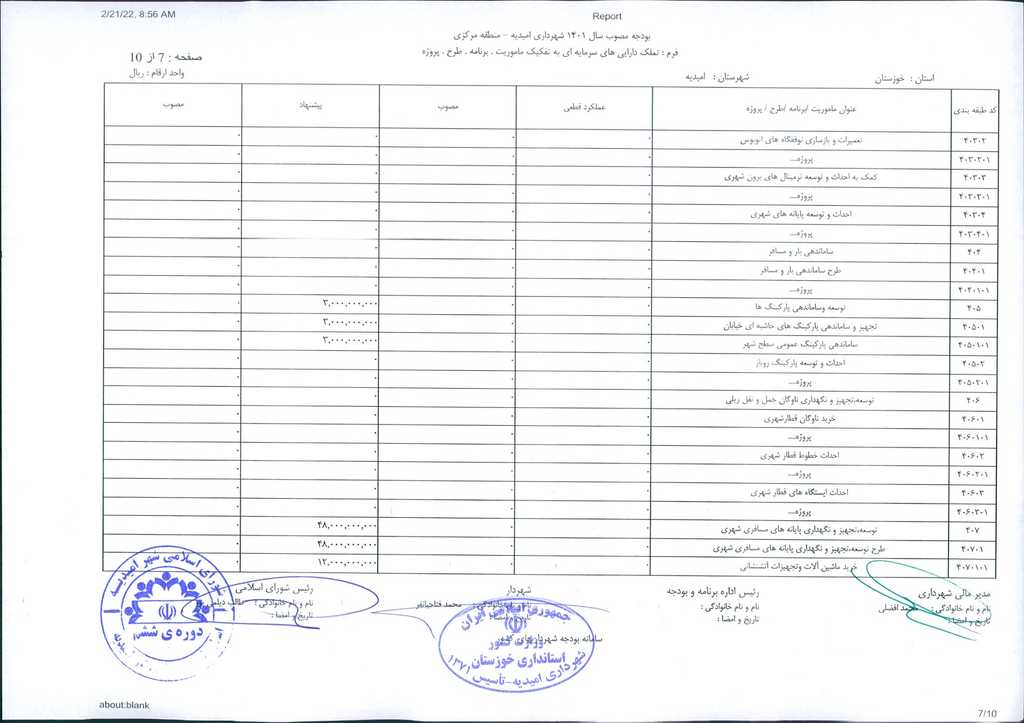 2/21/22, 8:56 AM
Report
بودجه مصوب سال ۱۴۰۱ شهرداری امیدیه - منطقه مرکزی
فرم : تملک دارایی های سرمایه ای به تفکیک ماموریت ، برنامه ، طرح ، پروژه
صفحه : 7 از 10
واحد ارقام : ریال
استان : خوزستان
شهرستان : امیدیه
کد طبقه بندی عنوان ماموریت /برنامه /طرح / پروژه عملکرد قطعی مصوب پیشنهاد مصوب
۴۰۳۰۲ تعمیرات و بازسازی توقفگاه های اتوبوس ۰ ۰ ۰ ۰
۴۰۳۰۲۰۱ پروژه... ۰ ۰ ۰ ۰
۴۰۳۰۳ کمک به احداث و توسعه ترمینال های برون شهری ۰ ۰ ۰ ۰
۴۰۳۰۳۰۱ پروژه... ۰ ۰ ۰ ۰
۴۰۳۰۴ احداث و توسعه پایانه های شهری ۰ ۰ ۰ ۰
۴۰۳۰۴۰۱ پروژه... ۰ ۰ ۰ ۰
۴۰۴ ساماندهی بار و مسافر ۰ ۰ ۰ ۰
۴۰۴۰۱ طرح ساماندهی بار و مسافر ۰ ۰ ۰ ۰
۴۰۴۰۱۰۱ پروژه... ۰ ۰ ۰ ۰
۴۰۵ توسعه وساماندهی پارکینگ ها ۰ ۰ ۳,۰۰۰,۰۰۰,۰۰۰ ۰
۴۰۵۰۱ تجهیز و ساماندهی پارکینگ های حاشیه ای خیابان ۰ ۰ ۳,۰۰۰,۰۰۰,۰۰۰ ۰
۴۰۵۰۱۰۱ ساماندهی پارکینگ عمومی سطح شهر ۰ ۰ ۳,۰۰۰,۰۰۰,۰۰۰ ۰
۴۰۵۰۲ احداث و توسعه پارکینگ روباز ۰ ۰ ۰ ۰
۴۰۵۰۲۰۱ پروژه... ۰ ۰ ۰ ۰
۴۰۶ توسعه،تجهیز و نگهداری ناوگان حمل و نقل ریلی ۰ ۰ ۰ ۰
۴۰۶۰۱ خرید ناوگان قطارشهری ۰ ۰ ۰ ۰
۴۰۶۰۱۰۱ پروژه... ۰ ۰ ۰ ۰
۴۰۶۰۲ احداث خطوط قطار شهری ۰ ۰ ۰ ۰
۴۰۶۰۲۰۱ پروژه... ۰ ۰ ۰ ۰
۴۰۶۰۳ احداث ایستگاه های قطار شهری ۰ ۰ ۰ ۰
۴۰۶۰۳۰۱ پروژه... ۰ ۰ ۰ ۰
۴۰۷ توسعه،تجهیز و نگهداری پایانه های مسافری شهری ۰ ۰ ۴۸,۰۰۰,۰۰۰,۰۰۰ ۰
۴۰۷۰۱ طرح توسعه،تجهیز و نگهداری پایانه های مسافری شهری ۰ ۰ ۴۸,۰۰۰,۰۰۰,۰۰۰ ۰
۴۰۷۰۱۰۱ خرید ماشین آلات وتجهیزات آتشنشانی ۰ ۰ ۱۲,۰۰۰,۰۰۰,۰۰۰ ۰
مدیر مالی شهرداری
نام و نام خانوادگی : محمد افضلی
تاریخ و امضا :
رئیس اداره برنامه و بودجه
نام و نام خانوادگی :
تاریخ و امضا :
شهردار
نام و نام خانوادگی : محمد فتاحیانفر
تاریخ و امضا :
رئیس شورای اسلامی
نام و نام خانوادگی : طالب
تاریخ و امضا :
سامانه بودجه شهرداریهای کشور
جمهوری اسلامی ایران
وزارت کشور
استانداری خوزستان
شهرداری امیدیه-تأسیس ۱۳۷۱
شورای اسلامی شهر امیدیه
دوره ی ششم
about:blank
7/10